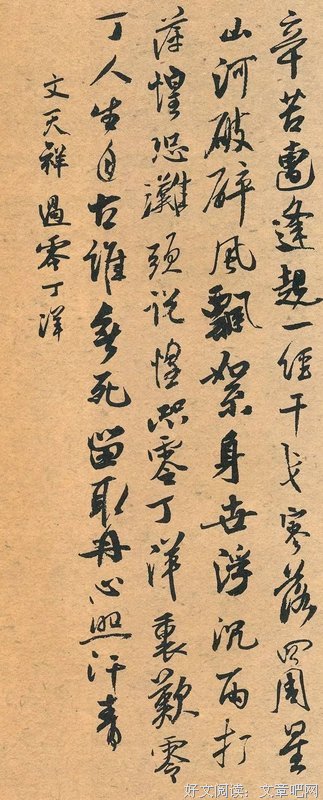 辛苦遭逢起一經干戈寥落四周星
山河破碎風飄絮身世浮沉雨打
萍惶恐灘頭説惶恐零丁洋裏歎零
丁人生自古誰無死留取丹心照汗青
文天祥 過零丁洋
好文阅读：文章吧网